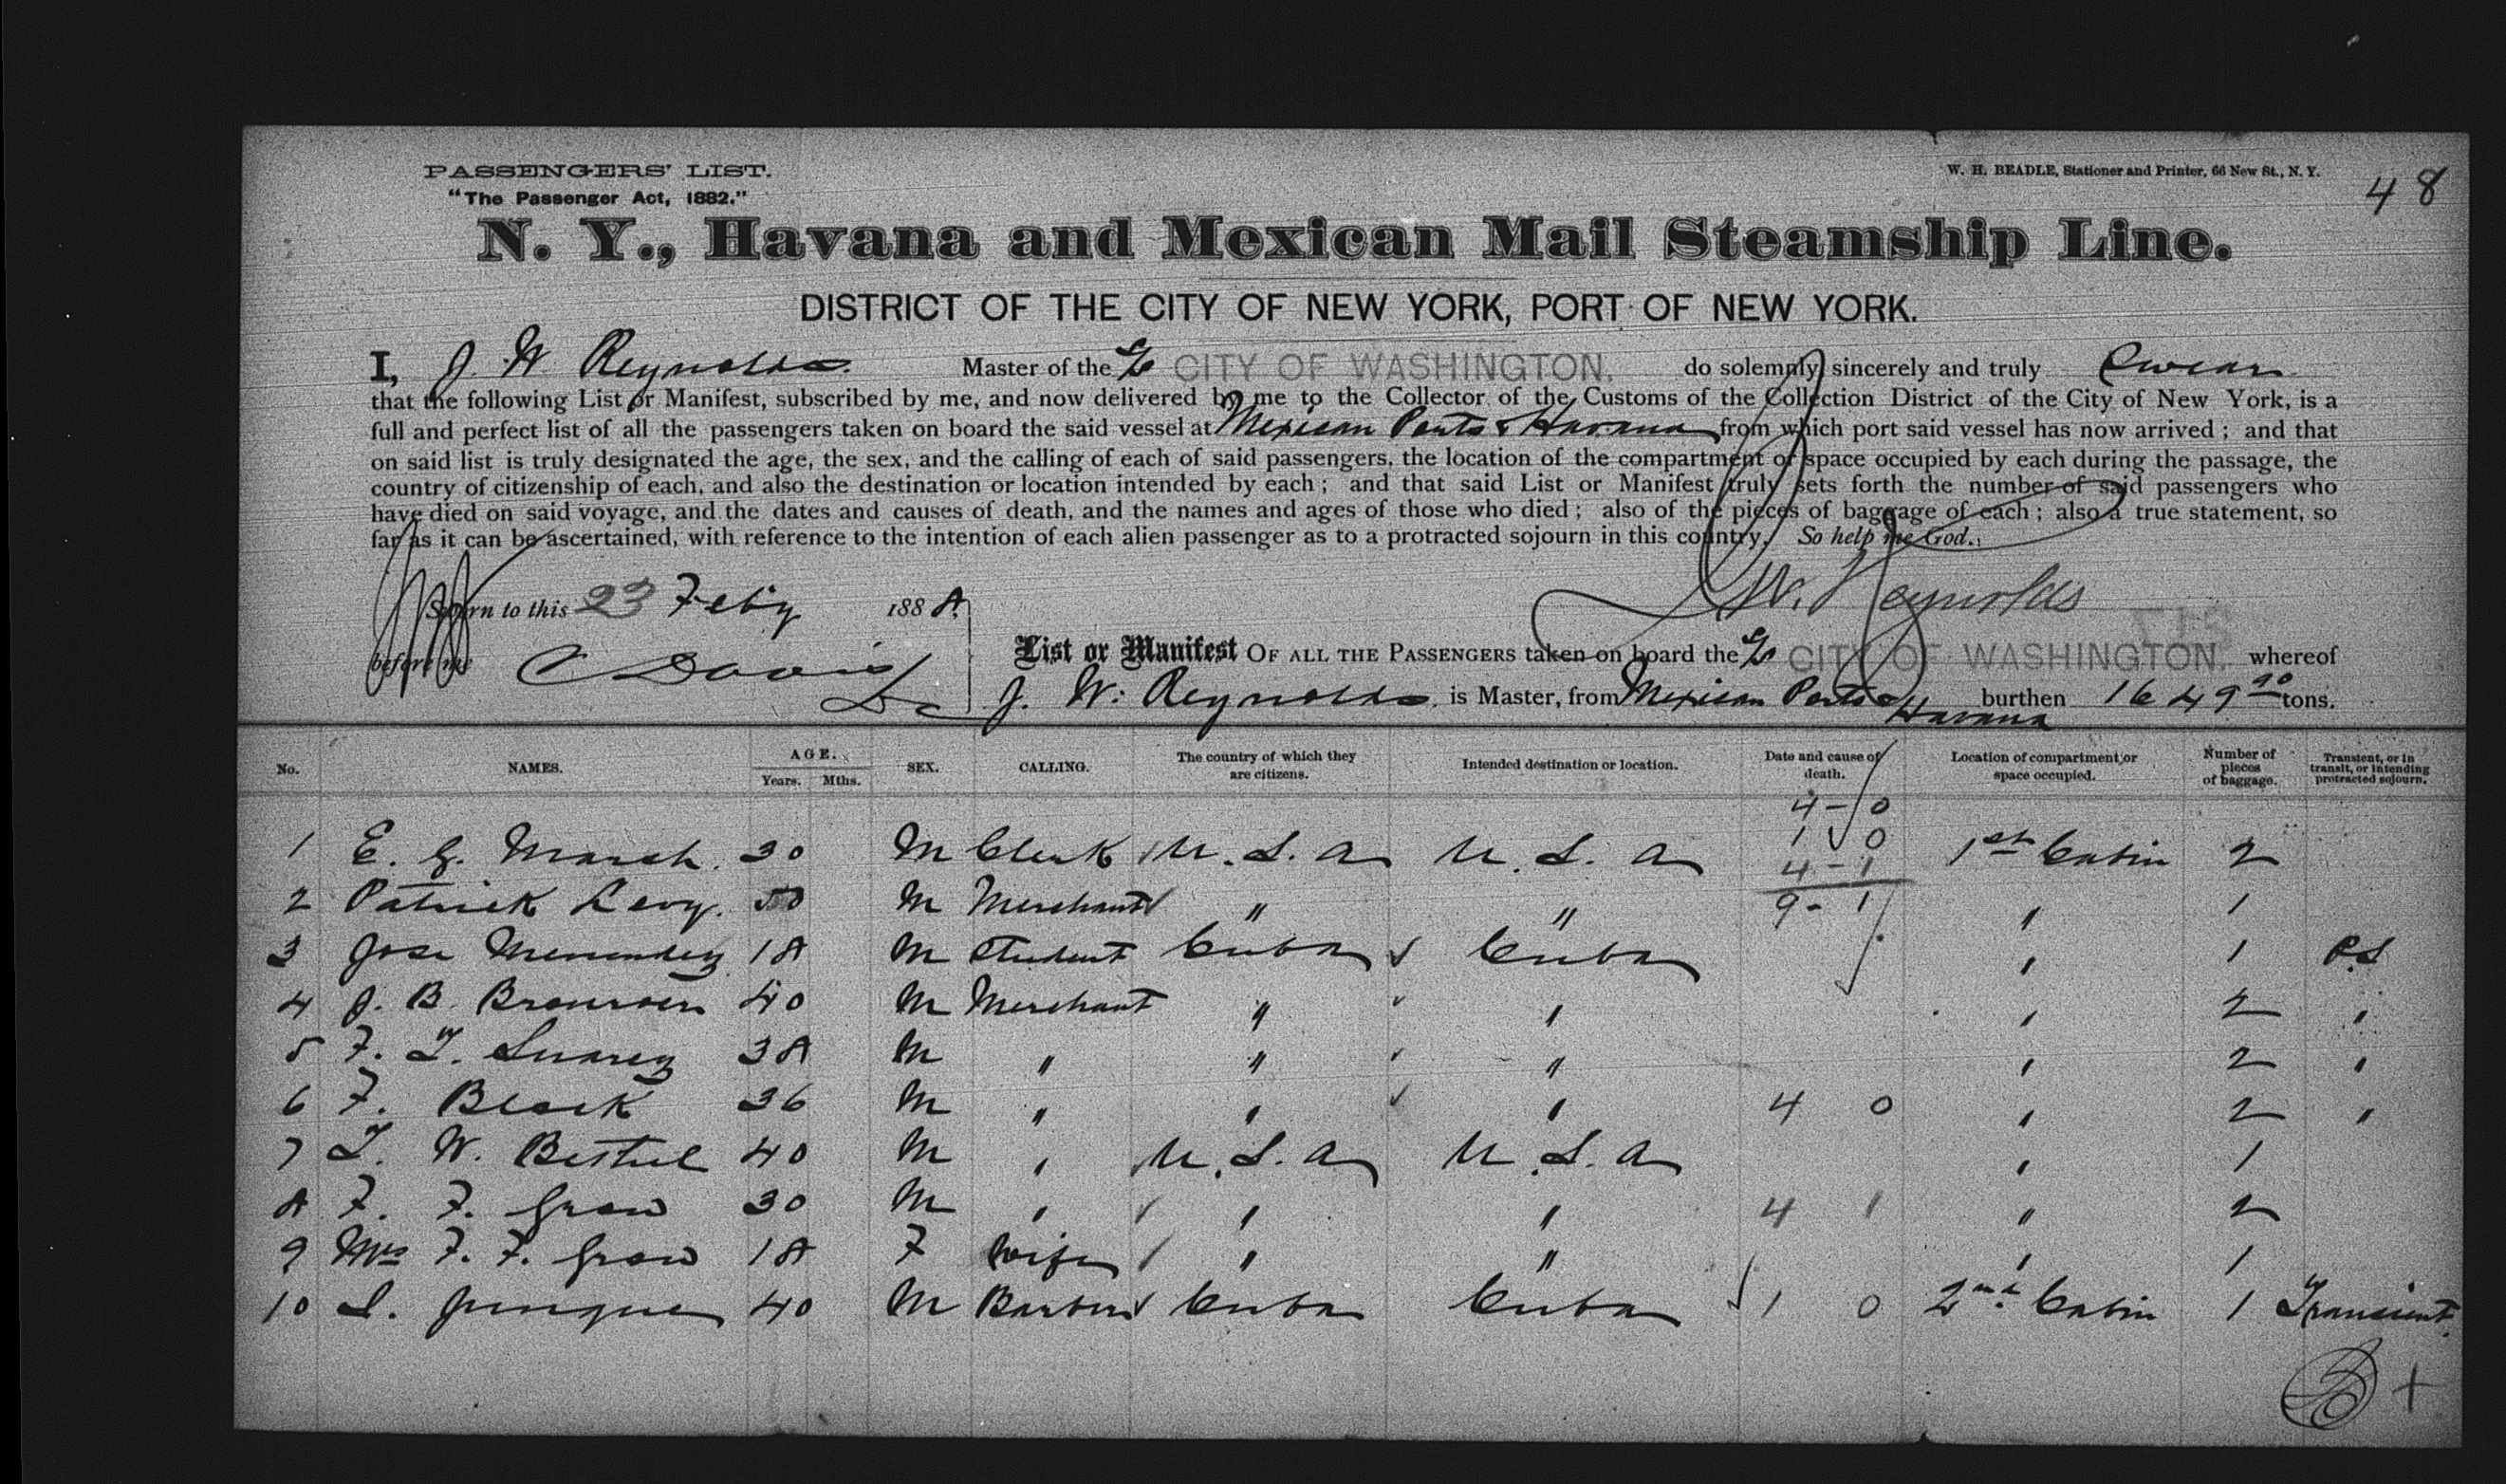 PASSENGERS' LIST.
"The Passenger Act, 1882."
W. H. BEADLE, Stationer and Printer, 66 New St., N. Y.
48
N. Y., Havana and Mexican Mail Steamship Line.
DISTRICT OF THE CITY OF NEW YORK, PORT OF NEW YORK.
I, J. W. Reynolds. Master of the S/S CITY OF WASHINGTON. do solemnly, sincerely and truly Swear
that the following List or Manifest, subscribed by me, and now delivered by me to the Collector of the Customs of the Collection District of the City of New York, is a
full and perfect list of all the passengers taken on board the said vessel at Mexican Ports & Havana from which port said vessel has now arrived; and that
on said list is truly designated the age, the sex, and the calling of each of said passengers, the location of the compartment or space occupied by each during the passage, the
country of citizenship of each, and also the destination or location intended by each; and that said List or Manifest truly sets forth the number of said passengers who
have died on said voyage, and the dates and causes of death, and the names and ages of those who died; also of the pieces of baggage of each; also a true statement, so
far as it can be ascertained, with reference to the intention of each alien passenger as to a protracted sojourn in this country. So help me God.
Sworn to this 23 Feby 1888. J W. Reynolds
before me C Davis
List or Manifest OF ALL THE PASSENGERS taken on board the S/S CITY OF WASHINGTON. whereof
J. W. Reynolds is Master, from Mexican Ports & Havana burthen 1649 90 tons.
No. NAMES. AGE. Years. Mths. SEX. CALLING. The country of which they are citizens. Intended destination or location. Date and cause of death. Location of compartment or space occupied. Number of pieces of baggage. Transient, or in transit, or intending protracted sojourn.
4 - 0
1 0
1 E. G. Marsh. 30 M Clerk U. S. A U. S. A 4 - 1 1st Cabin 2
2 Patrick Levy. 50 M Merchant " " 9 - 1 " 1
3 Jose Menendez 18 M Student Cuba Cuba " 1 P.S
4 J. B. 40 M Merchant " " " 2 "
5 F. T. Suarez 38 M " " " " 2 "
6 F. Black 36 M " " " 4 0 " 2 "
7 T. W. Bethel 40 M " U. S. A U. S. A " 1
8 F. F. Grow 30 M " " " 4 1 " 2
9 Mrs F. F. Grow 18 F Wife " " " 1
10 S. 40 M Barber Cuba Cuba 1 0 2nd Cabin 1 Transient.